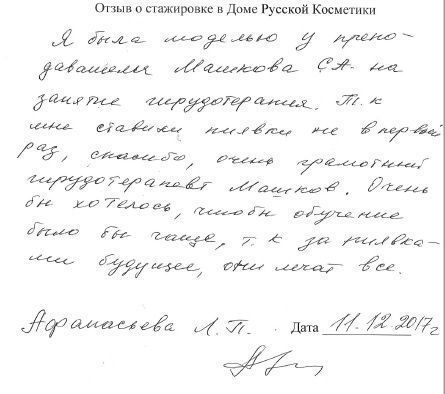 Отзыв о стажировке в Доме Русской Косметики
Я была моделью у препо-
давателя Машкова С.А. на
занятие гирудотерапия. Т.к
мне ставили пиявки не в первый
раз, спасибо, очень грамотный
гирудотерапевт Машков. Очень
бы хотелось, чтобы обучение
было бы чаще, т.к за пиявка-
ми будущее, они лечат все.
Афанасьева Л.П. Дата 11.12.2017г